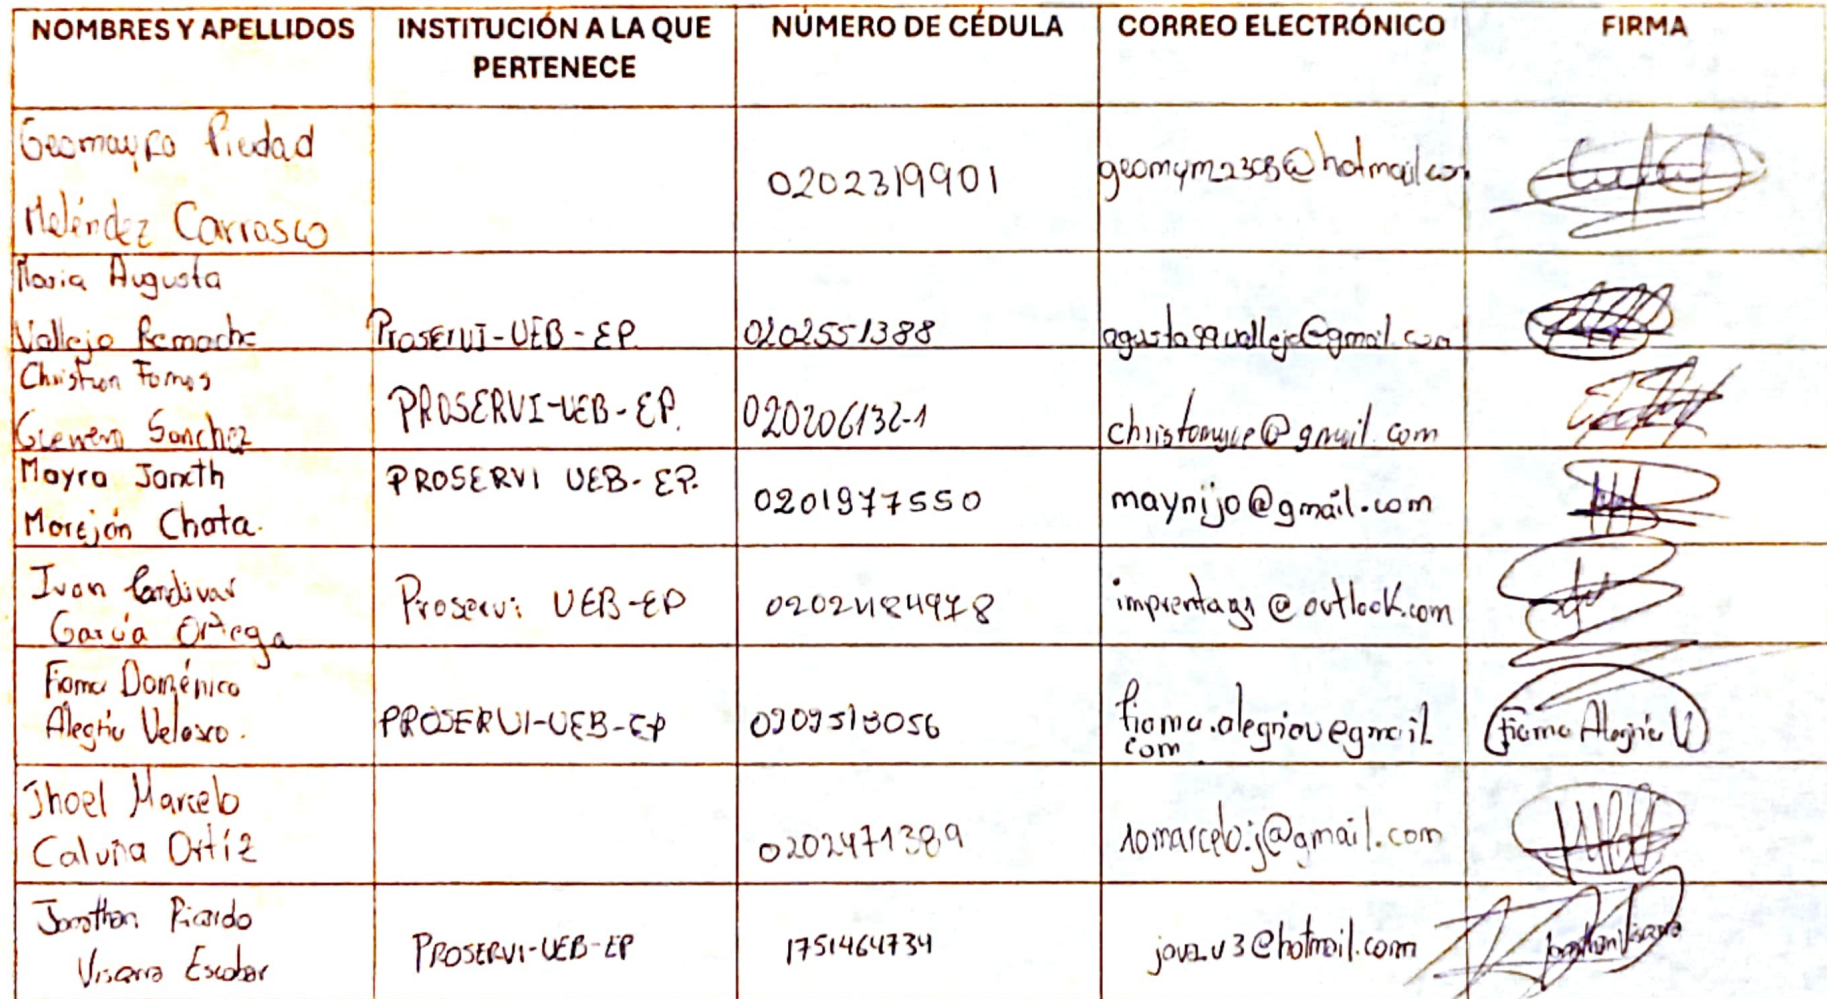 NOMBRES Y APELLIDOS INSTITUCIÓN A LA QUE PERTENECE NÚMERO DE CÉDULA CORREO ELECTRÓNICO FIRMA
Geomayra Piedad
Meléndez Carrasco 0202319901 @hotmail.com
Maria Augusta
Vallejo Remache PROSERVI-UEB-EP 0202551388 agusta99vallejo@gmail.com
Christian
Guerrero Sanchez PROSERVI-UEB-EP. 020206132-1 @gmail.com
Mayra Janeth
Morejón Chata. PROSERVI UEB-EP. 0201977550 maynijo@gmail.com
Ivan
García Ortega Proservi UEB-EP imprentags@outlook.com
Fiama Doménica
Alegría Velasco. PROSERVI-UEB-EP fiama.alegriav@gmail.
com Fiama Alegría V
Jhoel Marcelo
Caluña Ortíz 0202471389 10marcelo.j@gmail.com
Jonathan Ricardo
Viscarra Escobar PROSERVI-UEB-EP 1751464734 @hotmail.com